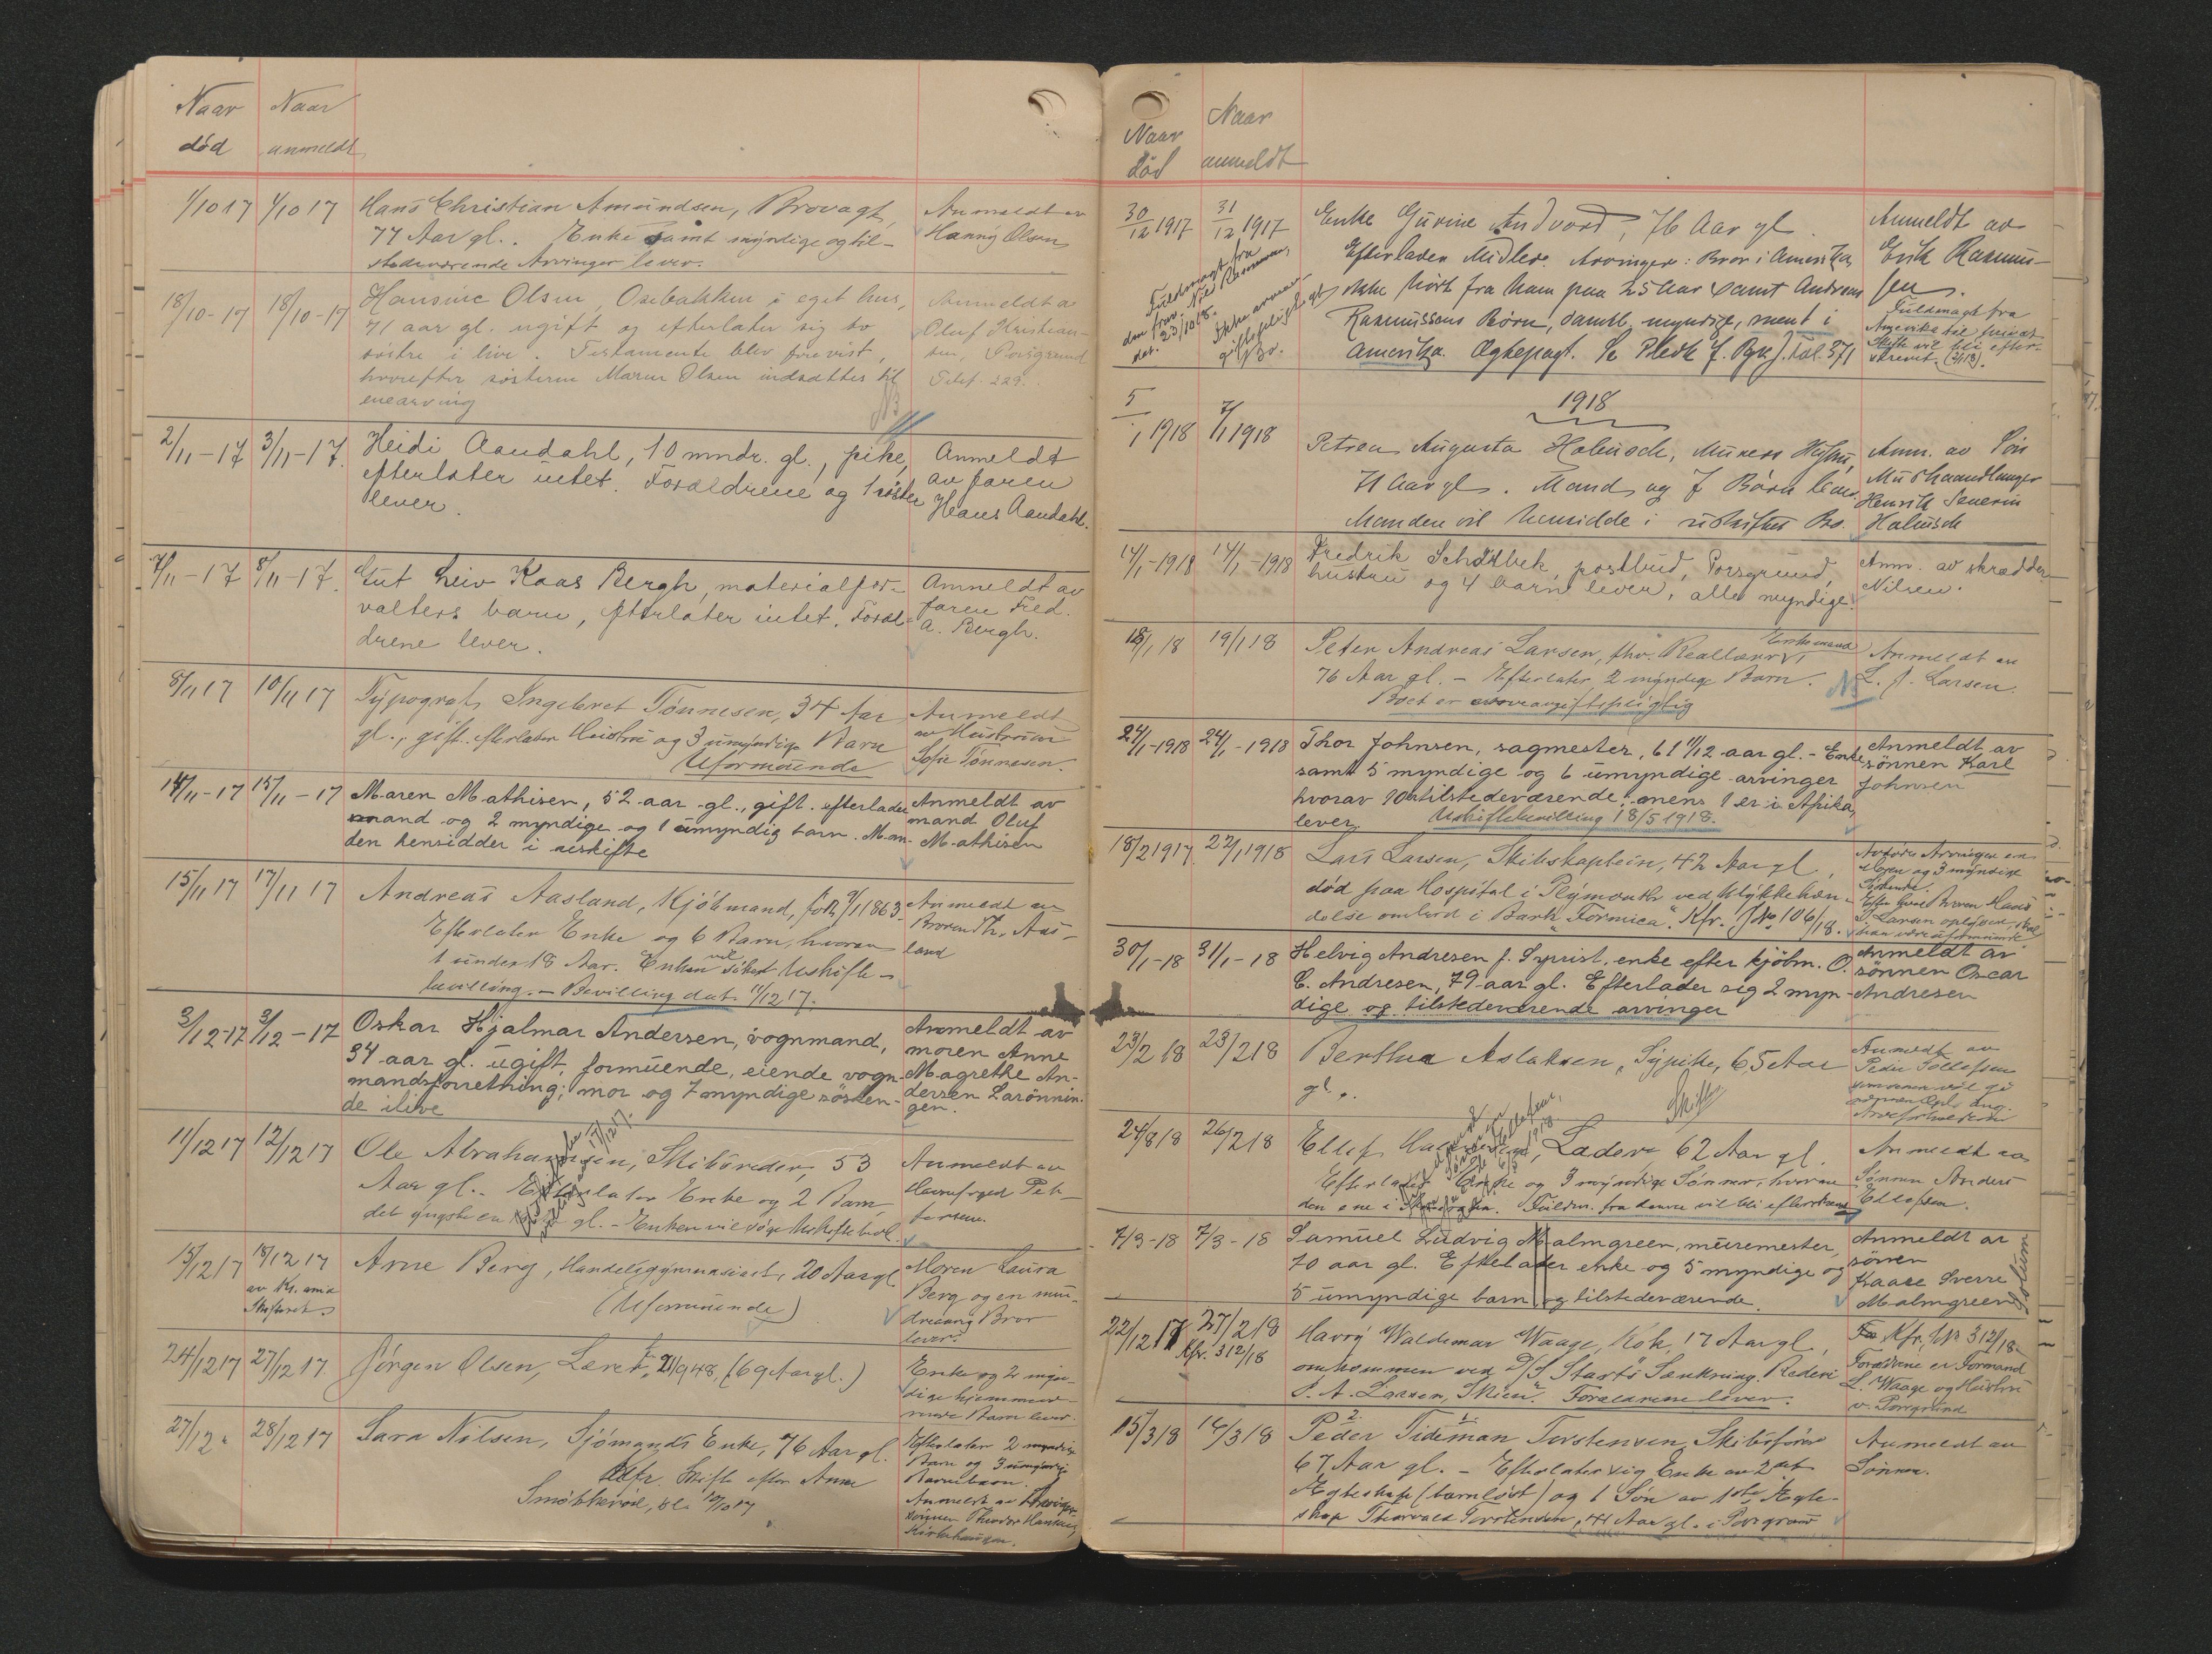 Naar Naar
død anmeldt
1/10 17 1/10 17 Hans Christian Amundsen, Brovagt, Anmeldt av
77 Aar gl. Enke samt myndige og til- Hanny Olsen
stedeværende Arvinger lever.
18/10-17 18/10-17 Hansine Olsen, Osebakken i eget hus, Anmeldt av
71 aar gl. ugift og efterlater sig to Oluf Kristian-
søstre i live. Testamente blev forevist, sen, Porsgrund
hvorefter søsteren Maren Olsen indsættes til Telef. 229.
enearving
2/11-17 3/11-17. Heidi Aandahl, 10 mndr. gl., pike, Anmeldt
efterlater intet. Forældrene og 1 søster av faren
lever. Hans Aandahl.
7/11-17 8/11-17. Gut Leiv Kaas Bergh, materialfor- Anmeldt av
valters barn, efterlater intet. Foræl- faren Fred.
drene lever. A. Bergh.
8/11 17 10/11 17 Typograf Ingebret Tønnesen, 34 Aar Anmeldt
gl., gift. efterlater Hustru og 3 umyndige Barn av Hustruen
Uformuende Sofie Tønnesen.
14/11-17 15/11-17 Maren Mathisen, 52 aar gl., gift. efterlader Anmeldt av
mand og 2 myndige og 1 umyndig barn. Man- mand Oluf
den hensidder i uskifte Mathisen
15/11 17 17/11 17 Andreas Aasland, Kjøbmand, født 9/1 1863. Anmeldt av
Efterlater Enke og 6 Barn, hvorav Broren Th. Aas-
1 under 18 Aar. Enken vil søke Uskifte- land
bevilling. - Bevilling dat. 11/12 17.
3/12-17 3/12-17 Oskar Hjalmar Andersen, vognmand, Anmeldt av
34 aar gl. ugift, formuende, eiende vogn- moren Anne
mandsforretning; mor og 7 myndige søsken- Magrethe An-
de ilive dersen Larønnin-
gen.
11/12 17 12/12 17 Ole Abrahamsen, Skibsreder, 53 Anmeldt av
Aar gl. - Efterlater Enke og 2 Barn,
det yngste gl. - Enken vil søge Uskiftebevl.
15/12 17 18/12 17 Arne Berg, Handelsgymnasiast, 20 Aar gl. Moren Laura
av Kr.ania (Uformuende) Berg og en min-
Skifteret dreaarig Bror
lever.
24/12 17 27/12 17. Jørgen Olsen, (69 Aar gl.) Enke og 2 myn-
dige hjemmevæ-
rende Barn lever.
27/12 28/12 17 Sara Nilsen, Sjømands Enke, 76 Aar gl. Efterlater 2 myndige
Kfr. Skifte efter Anne Barn og 3 umyndige
Barnebarn.
Anmeldt av
sønnen Theodor Hansen,
Naar Naar
død anmeldt
30/12 1917 31/12 1917 Enke Gurine Andvord, 76 Aar gl. Anmeldt av
Efterlader Midler. Arvinger: Bror i Amerika, Erik Rasmus-
ikke hørt fra ham paa 25 Aar samt Andreas sen.
Rasmussens Børn, samtl. myndige, men 1 i Fuldmagt fra
Amerika. Ægtepagt. Fol. 371
Fuldmagt fra
den frav. Nils Rasmussen,
dat. 23/10 18.
1918
5/1 1918 7/1 1918 Petrea Augusta Halvosch, Murers Hustru, Anm. av Søn
71 Aar gl. Mand og 7 Børn lever. Murhaandlanger
Manden vil hensidde i uskiftet Bo. Henrik Severin
14/1-1918 14/1-1918 Fredrik postbud, Porsgrund, Anm. av skrædder
hustru og 4 barn lever, alle myndige. Nilsen.
18/1 18 19/1 18 Peter Andreas Larsen, fhv. Reallærer, Enkemand Anmeldt av
76 Aar gl. - Efterlater 2 myndige Barn. L. J. Larsen.
Boet er arveavgiftspligtig
24/1-1918 24/1-1918 Thor Johnsen, sagmester, 61 11/12 aar gl. - Enke Anmeldt av
samt 5 myndige og 6 umyndige arvinger sønnen Karl
hvorav 10 tilstedeværende, mens 1 er i Afrika, Johnsen
lever. Uskiftebevilling 18/5 1918.
18/2 1917 22/1 1918 Lars Larsen, Skibskaptein, 42 Aar gl,
død paa Hospital i Plymouth ved Ulykkehæn-
delse ombord i Bark "Formica". Kfr. J№ 106/18.
30/1-18 31/1-18 Helvig Andresen f. enke efter kjøbm. O. Anmeldt av
C. Andresen, 79 aar gl. Efterlader sig 2 myn- sønnen Oscar
dige og tilstedeværende arvinger Andresen
23/2 18 23/2 18 Berthea Aslaksen, Sypike, 65 Aar Anmeldt av
gl. Skifte
24/2 18 26/2 18 Ellef Lader 62 Aar gl. Anmeldt av
Efterlater Enke og 3 myndige Sønner, hvorav Sønnen Anders
den ene i Fuldm. fra denne vil bli efterskrevet Ellefsen.
7/3-18 7/3-18 Samuel Ludvig Malmgreen, muremester, Anmeldt av
70 aar gl. Efterlader enke og 5 myndige og sønnen
5 umyndige barn, og tilstedeværende. Kaare Sverre
Malmgreen
Solum
22/12 17 27/2 18 Harry Waldemar Waage, Kok, 17 Aar gl, Kfr. J№ 312/18.
Kfr. 312/18 omkommen ved D/S "Starts" Sænkning. Rederi Forældrene er Formand
P. A. Larsen, Skien. Forældrene lever. L. Waage og Hustru
Porsgrund
15/3 18 16/3 18 Peder Tideman Terstensen, Skibsfører Anmeldt av
67 Aar gl. - Efterlater sig Enke av 2det Sønnen.
Ægteskap (barnløst) og 1 Søn av 1ste Ægte-
skap Thorvald Terstensen, 41 Aar gl. i Porsgrund